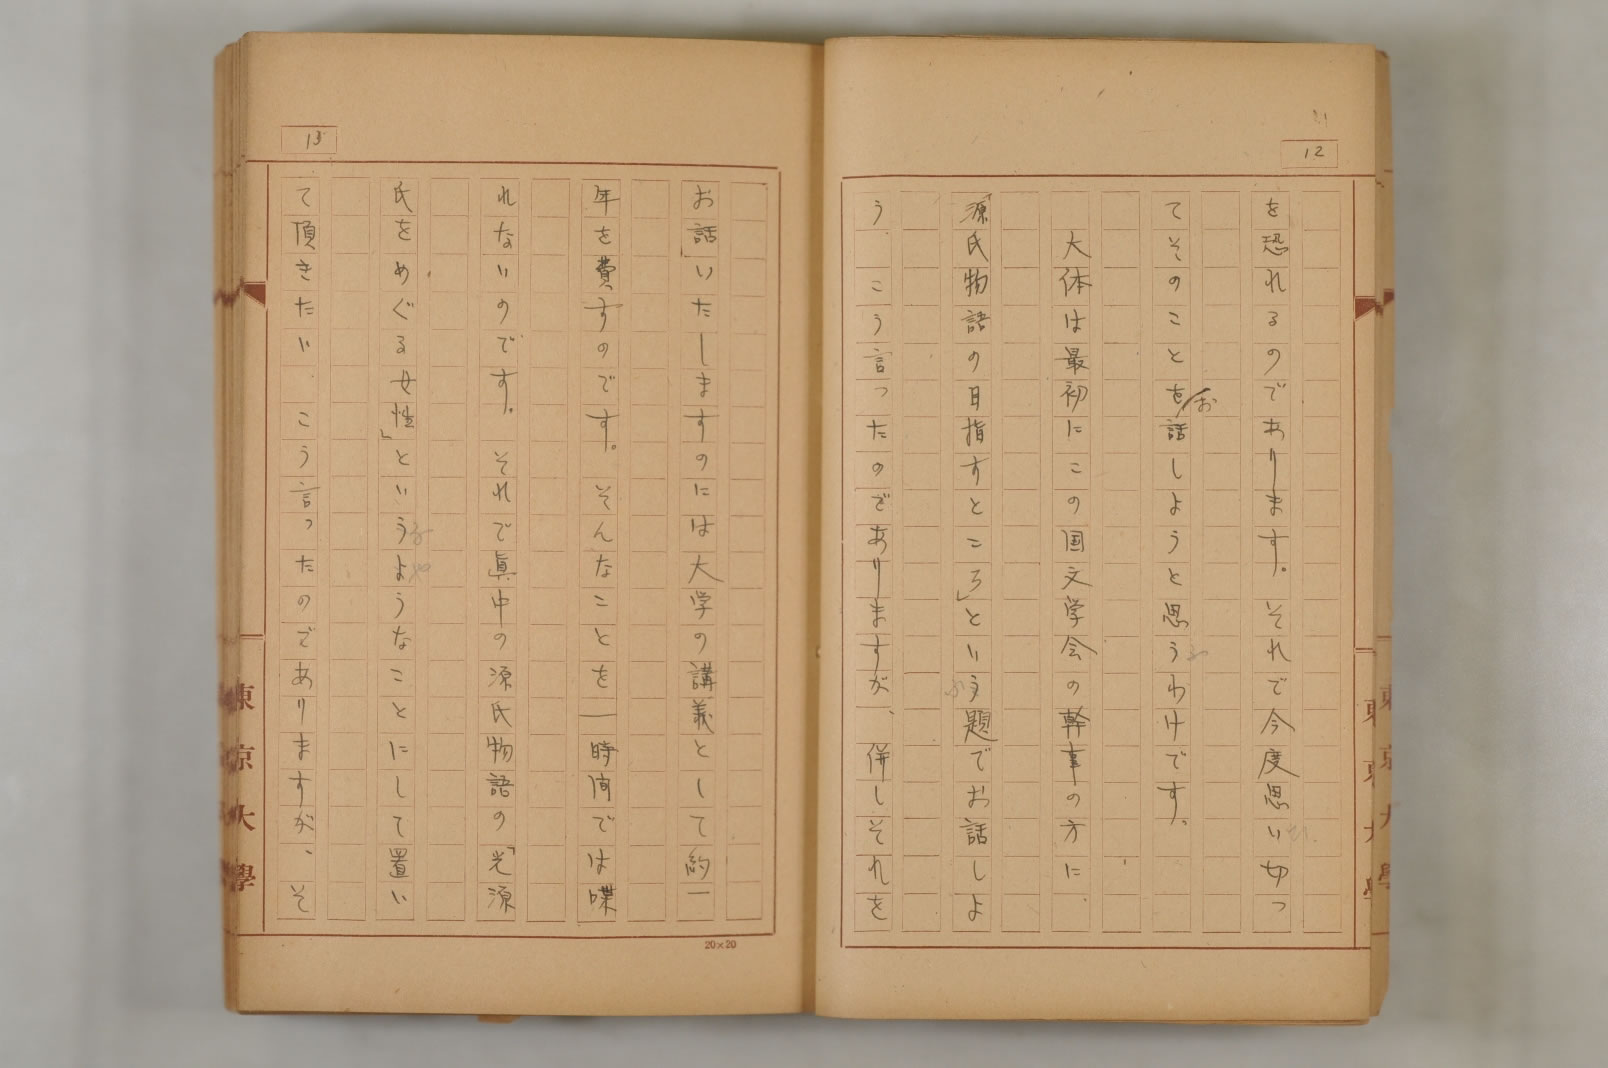 12
を恐れるのであります。それで今度思い切っ
てそのことをお話しようと思うわけです。
大体は最初にこの国文学会の幹事の方に
「源氏物語の目指すところ」という題でお話しよ
う、こう言ったのでありますが、併しそれを
13
お話いたしますのには大学の講義として約一
年を費すのです。そんなことを一時間では喋
れないのです。それで眞中の源氏物語の「光源
氏をめぐる女性」というようなことにして置い
て頂きたい、こう言ったのでありますが、そ
20×20
東京大學
東京大學